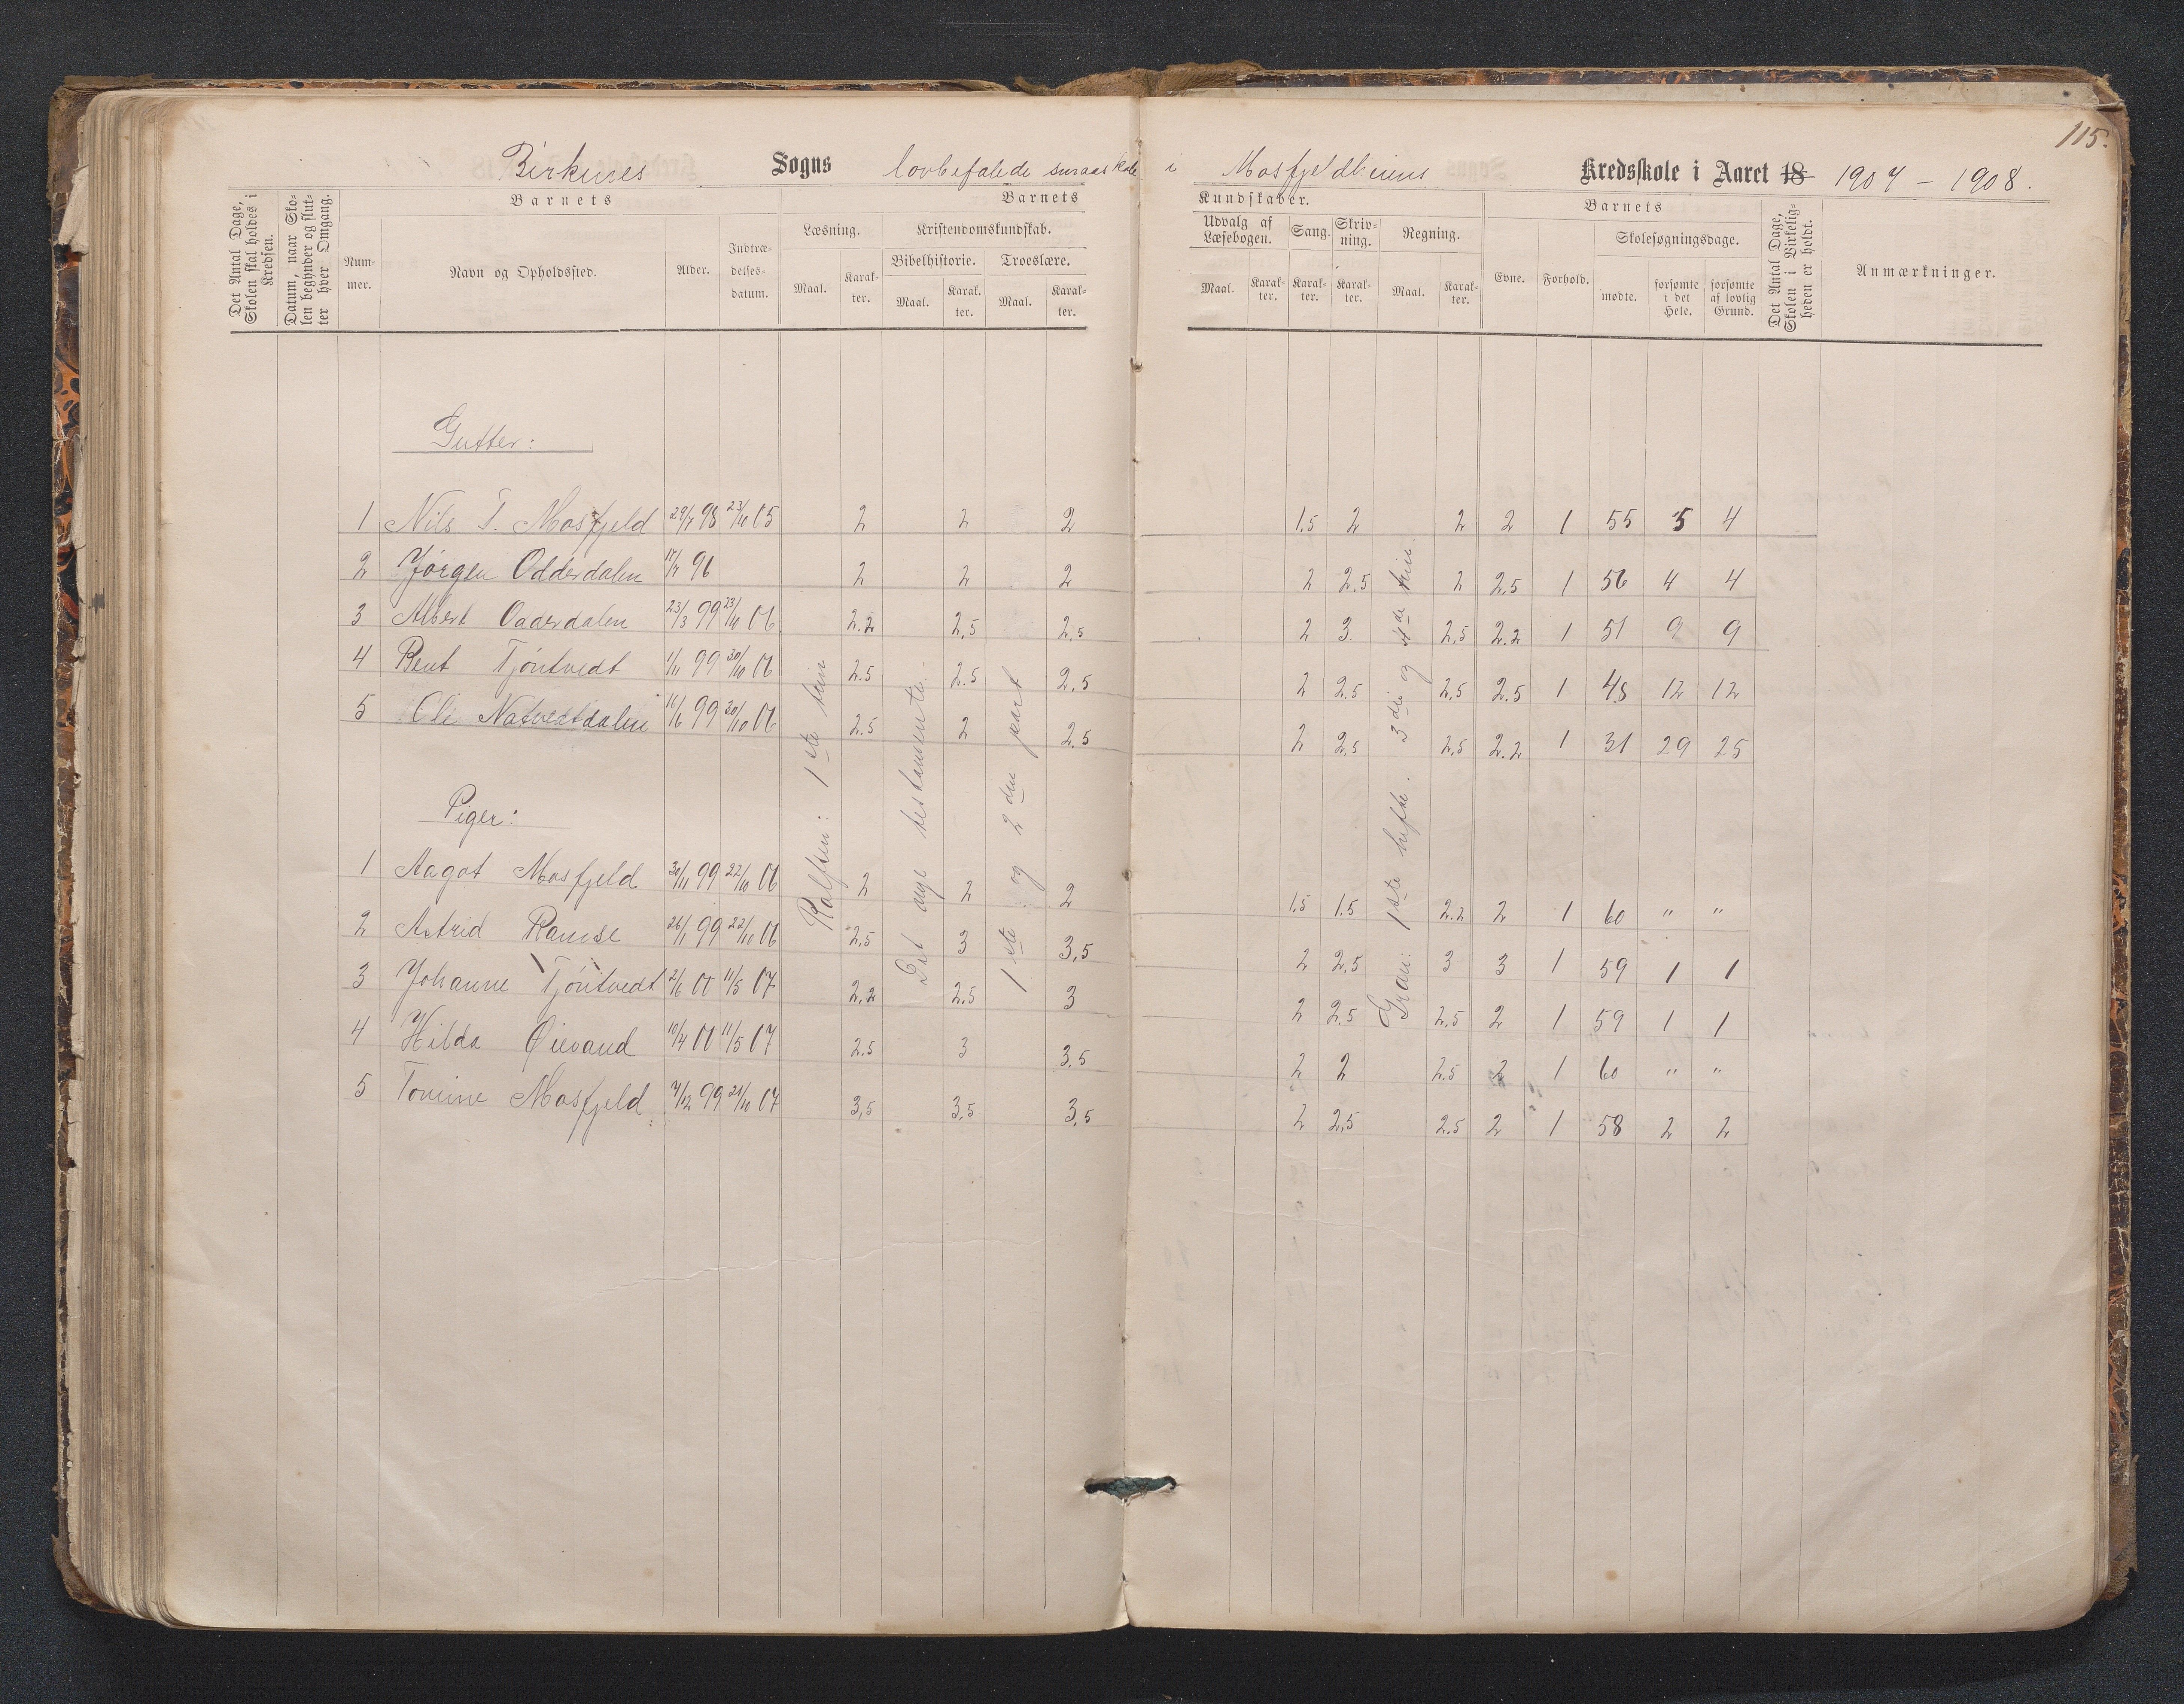 115.
Birkenes Sogns lovbefalede smaaskole i Mosfjeldheiens Kredsskole i Aaret 18 1907 - 1908.
Det Antal Dage, Skolen skal holdes i Kredsen.
Datum, naar Skolen begynder og slutter hver Omgang.
Barnets
Nummer.
Navn og Opholdssted.
Alder.
Indtrædelsesdatum.
Barnets
Læsning.
Maal. Karakter.
Kristendomskundskab.
Bibelhistorie. Troeslære.
Maal. Karakter. Maal. Karakter.
Kundskaber.
Udvalg af Læsebogen. Sang. Skrivning. Regning.
Maal. Karakter. Karakter. Karakter. Maal. Karakter.
Barnets
Evne. Forhold.
Skolesøgningsdage.
mødte. forsømte i det Hele. forsømte af lovlig Grund.
Det Antal Dage, Skolen i Virkeligheden er holdt.
Anmærkninger.
Gutter:
1 Nils T. Mosfjeld 29/7 98 23/10 05 2 2 2 1.5 2 2 2 1 55 5 4
2 Jørgen Odderdalen 17/7 96 2 2 2 2 2.5 2 2.5 1 56 4 4
3 Albert Oaderdalen 23/3 99 23/10 06 2.2 2,5 2,5 2 3 2,5 2.2 1 51 9 9
4 Bent Tjöntvedt 1/11 99 30/10 06 2.5 2.5 2,5 2 2.5 2,5 2.5 1 48 12 12
5 Ole Natvedtdalen 16/6 99 30/10 06 2.5 2 2.5 2 2.5 2,5 2.2 1 31 29 25
Piger:
1 Aagot Mosfjeld 30/11 99 22/10 06 2 2 2 1.5 1.5 2.2 2 1 60 " "
2 Astrid Ramse 26/1 99 22/10 06 2,5 3 3,5 2 2,5 3 3 1 59 1 1
3 Johanne Tjöntvedt 2/6 00 11/5 07 2,2 2.5 3 2 2.5 2,5 2 1 59 1 1
4 Hilda Øievand 10/4 00 11/5 07 2.5 3 3.5 2 2 2.5 2 1 60 " "
5 Tomine Mosfjeld 7/12 99 21/10 07 3,5 3,5 3,5 2 2,5 2.5 2 1 58 2 2
Rolfsen: 1ste trin
Det nye testamente.
1ste og 2den part
Gran: 1ste hefte. 3die og 4de trin.